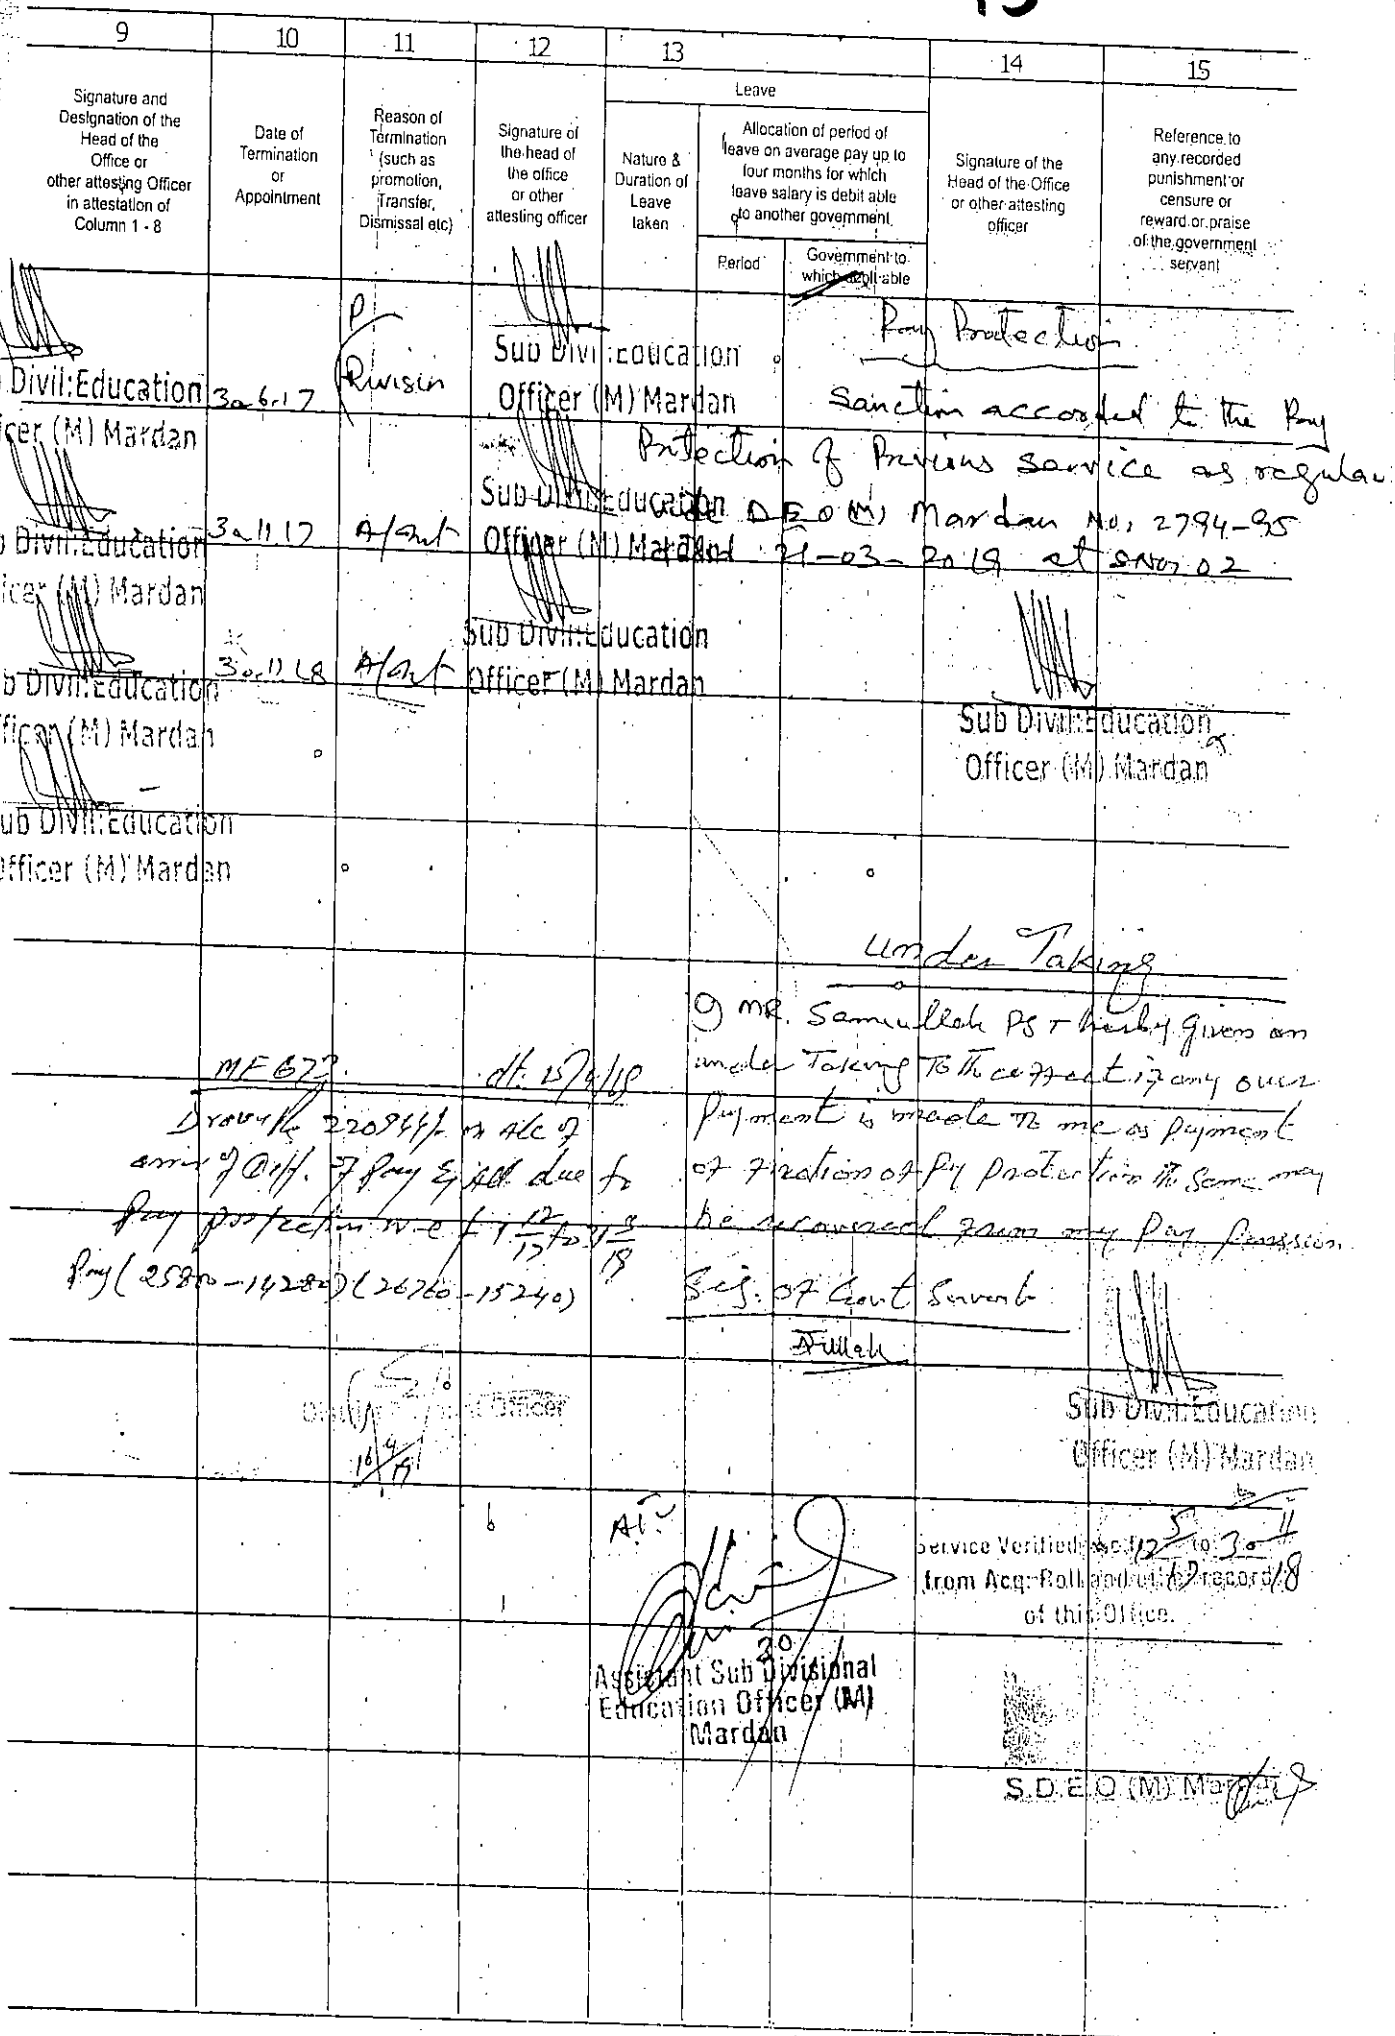 9 10 11 12 13 14 15
Signature and
Designation of the
Head of the
Office or
other attesting Officer
in attestation of
Column 1 - 8
Date of
Termination
or
Appointment
Reason of
Termination
(such as
promotion,
Transfer,
Dismissal etc)
Signature of
the head of
the office
or other
attesting officer
Leave
Nature &
Duration of
Leave
taken
Allocation of period of
leave on average pay up to
four months for which
leave salary is debit able
to another government
Period
Government to
which debit able
Signature of the
Head of the Office
or other attesting
officer
Reference to
any recorded
punishment or
censure or
reward or praise
of the government
servant
Divil:Education
icer (M) Mardan
30.6.17
P
Rivisin
Sub Divil:Education
Officer (M) Mardan
Pay Protection
Sanction accorded to the Pay
Protection of Previous service as regular
DEO (M) Mardan No, 2794-95
21-03-2019 at SNo, 02
b Divil:Education
icer (M) Mardan
30.11.17
A/Inct
Sub Divil:Education
Officer (M) Mardan
b Divil:Education
fficer (M) Mardan
30.11.18
A/Inct
Sub Divil:Education
Officer (M) Mardan
Sub Divil:Education
Officer (M) Mardan
ub Divil:Education
Officer (M) Mardan
under Taking
I MR. Samiullah PST hereby given an
under Taking To the effect if any over
Payment is made To me as Payment
of fixation of Py protection the same may
be recovered from my Pay Penssion
Sig. of Govt Servant
Sub Divil:Education
Officer (M) Mardan
dt. 15/4/19
Pay protection w-e-f 1 12/17 to 31 3/19
Pay (25800-14280) (26760-15240)
Officer
16/4/19
Assistant Sub Divisional
Education Officer (M)
Mardan
30
Service Verified to 30 11/18
from Acq: Roll and other record
of this Office.
S.D.E.O (M) Mardan